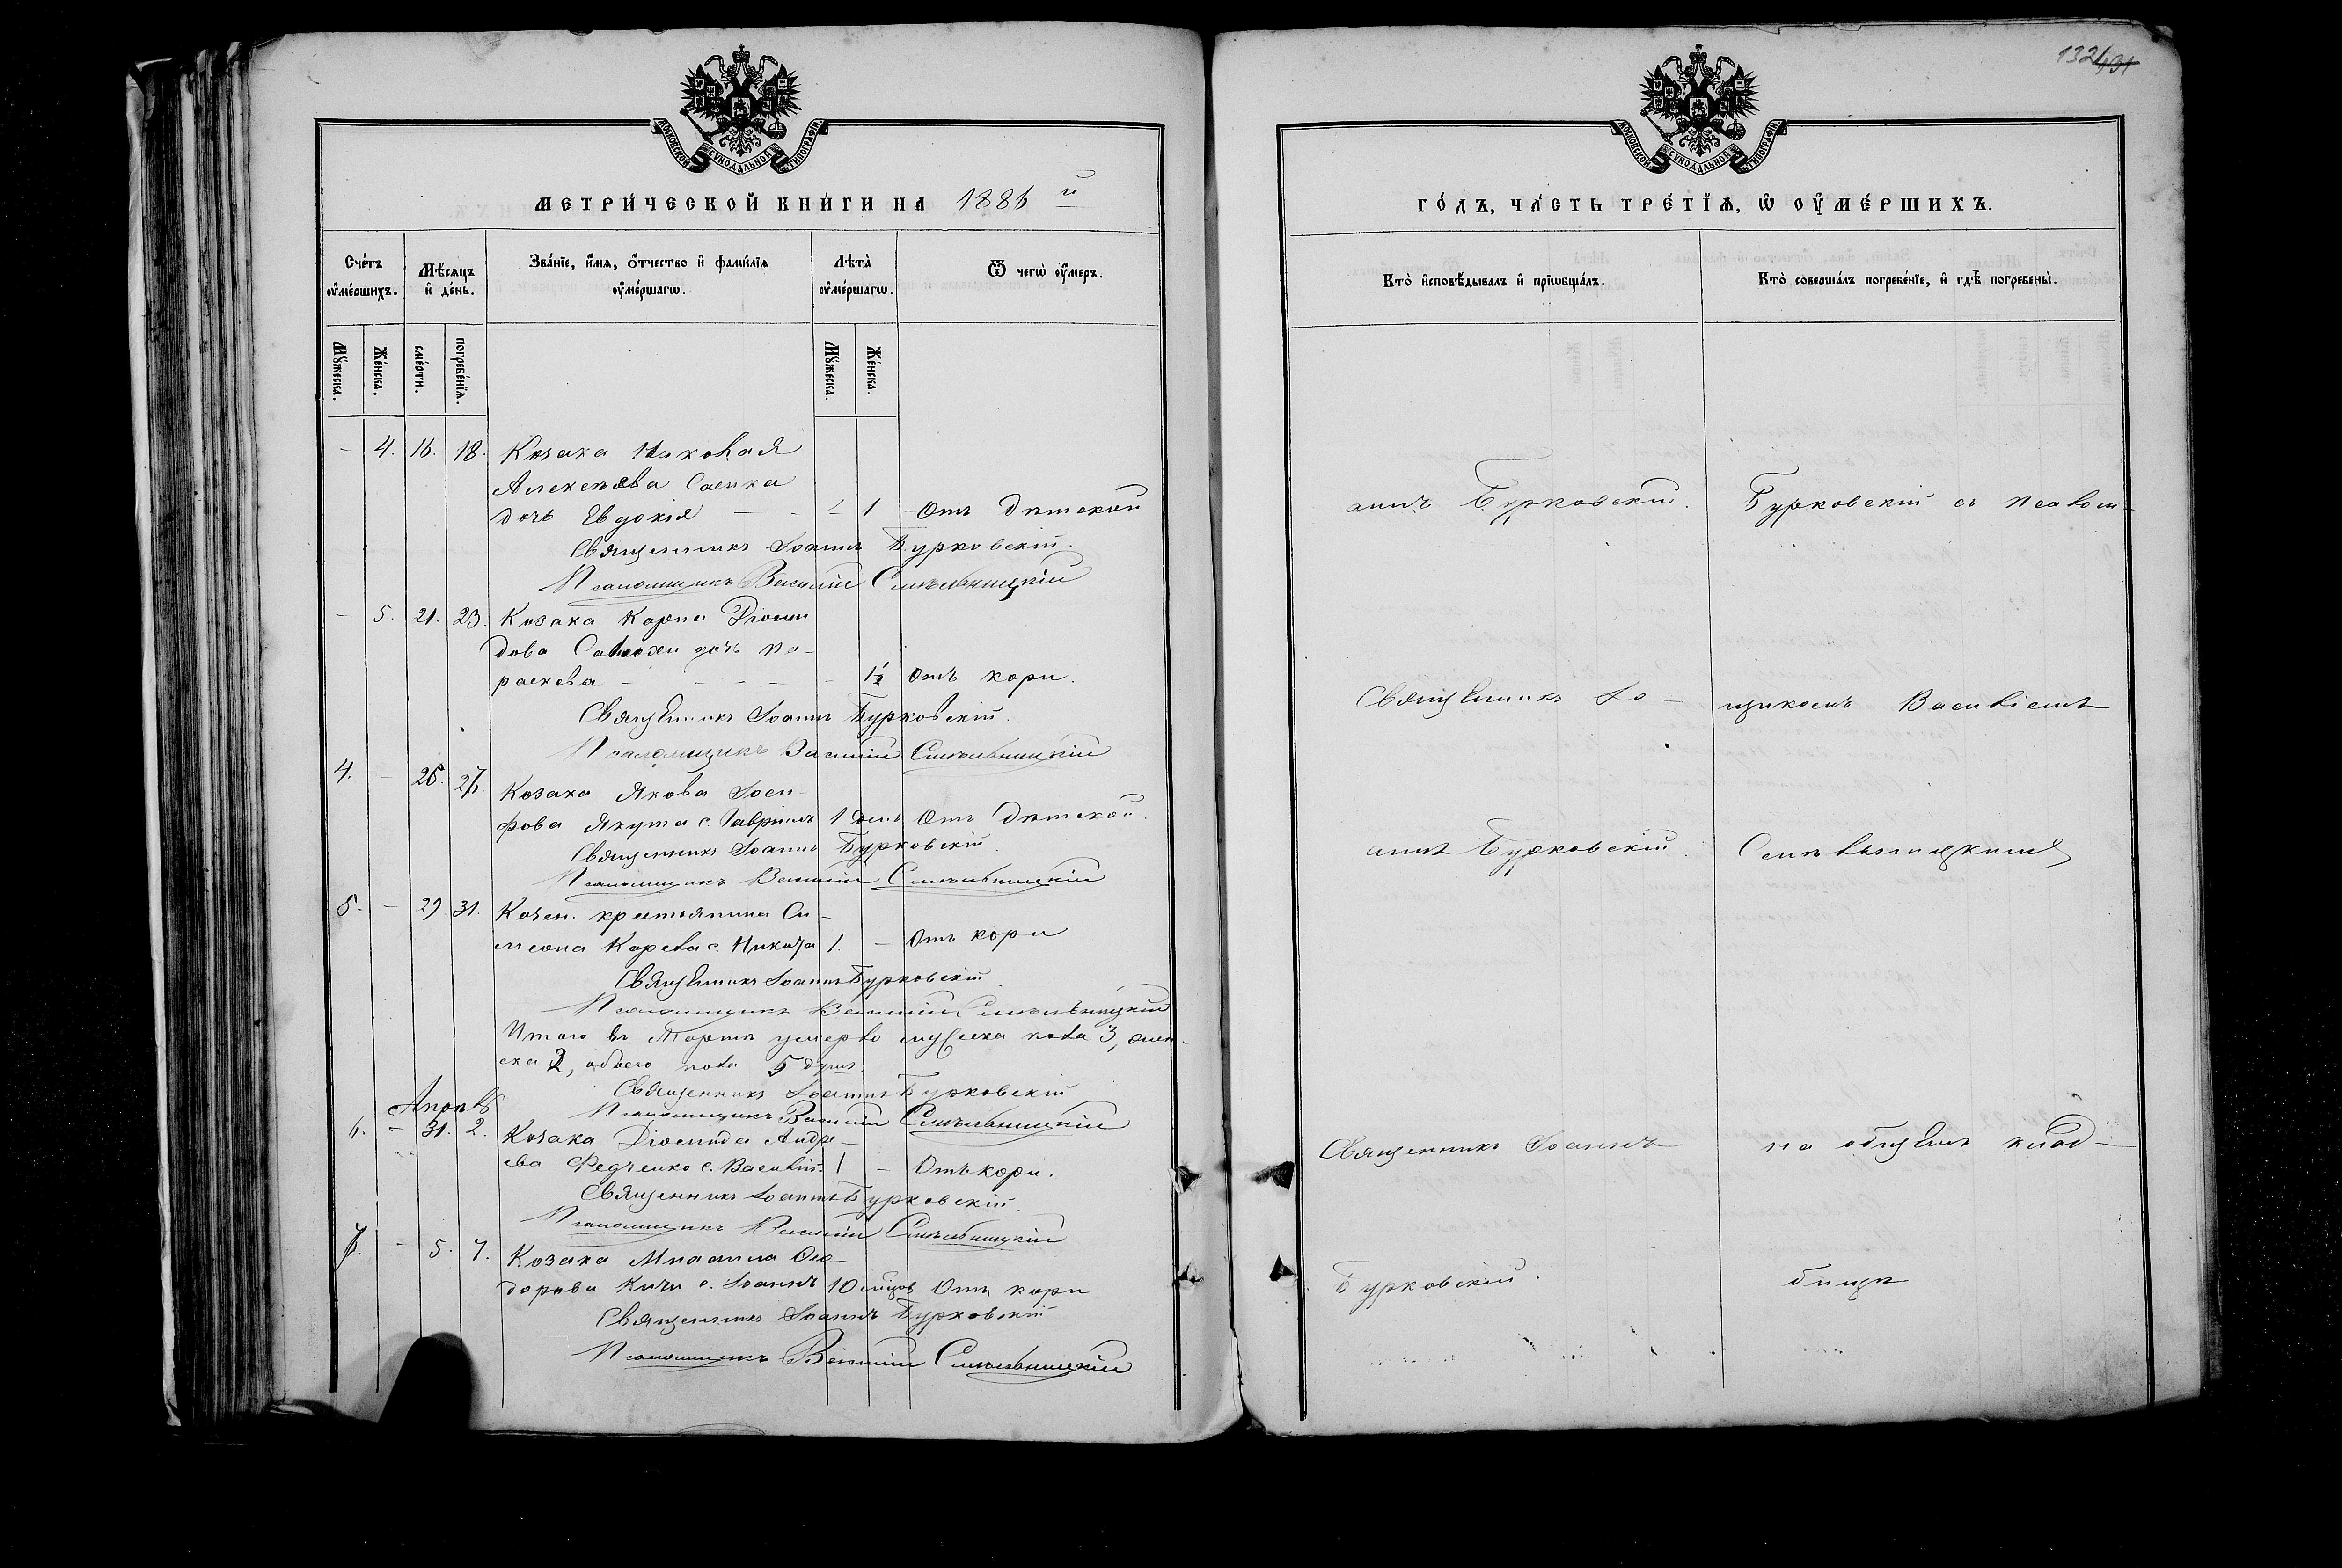 МОСКОВСКОЙ СѴНОДАЛЬНОЙ ТИПОГРАФІИ
МЕТРИ́ЧЕСКОЙ КНИ́ГИ НА 1886 й
Сче́тъ оу҆ме́ршихъ.
Мѣ́сяцъ и҆ де́нь.
Зва́нїе, и҆́мя, ѻ҆́тчество и҆ фами́лїя оу҆ме́ршагѡ.
Лѣта̀ оу҆ме́ршагѡ.
Ѿ чегѡ̀ оу҆́меръ.
Мꙋ́жеска. Же́нска. сме́рти. погребе́нїѧ. Мꙋ́жеска. Же́нска.
- 4. 16. 18. Козака Николая
Алексѣева Саенка
дочь Евдокія - - - 1 - Отъ дѣтской
Священникъ Іоаннъ Бурковскій.
Псаломщикъ Василій Смѣльницкій
- 5. 21. 23. Козака Карпа Діоми
дова дочь Па-
раскева - - - - - 1½ Отъ кори.
Священникъ Іоаннъ Бурковскій.
Псаломщикъ Василій Смѣльницкій
4. - 25. 27. Козака Якова Іоси-
фова Якута с. Гавріилъ 1 день Отъ дѣтской.
Священникъ Іоаннъ Бурковскій.
Псаломщикъ Василій Смѣльницкій
5. - 29. 31. Козен. крестьянина Си-
меона Карева с. Никита 1. - Отъ кори
Священникъ Іоаннъ Бурковскій
Псаломщикъ Василій Смѣльницкій
Итого въ Мартѣ умерло мужеска пола 3, жен-
ска 2, обоего пола 5 душъ.
Священникъ Іоаннъ Бурковскій
Апрѣль
Псаломщикъ Василій Смѣльницкій
6. - 31. 2. Козака Діомида Андре-
ева Федченко с. Василій 1 - Отъ кори.
Священникъ Іоаннъ Бурковскій.
Псаломщикъ Василій Смѣльницкій
7. - 5. 7. Козака Михаила Ѳео-
дорова с. Іоаннъ 10 мѣсяцовъ Отъ кори
Священникъ Іоаннъ Бурковскій
Псаломщикъ Василій Смѣльницкій
132 131
МОСКОВСКОЙ СѴНОДАЛЬНОЙ ТИПОГРАФІИ
ГО́ДЪ, ЧА́СТЬ ТРЕ́ТЇѦ, Ѡ҆ ОУ҆МЕ́РШИХЪ.
Кто̀ и҆сповѣ́дывалъ и҆ прїѡбща́лъ.
Кто̀ соверша́лъ погребе́нїе, и҆ гдѣ̀ погребены̀.
аннъ Бурковскій.
Бурковскій съ Псалом-
Священникъ Іо-
щикомъ Василіемъ
аннъ Бурковскій.
Смѣльницкимъ
Священникъ Іоаннъ
на общемъ клад-
Бурковскій.
бищѣ